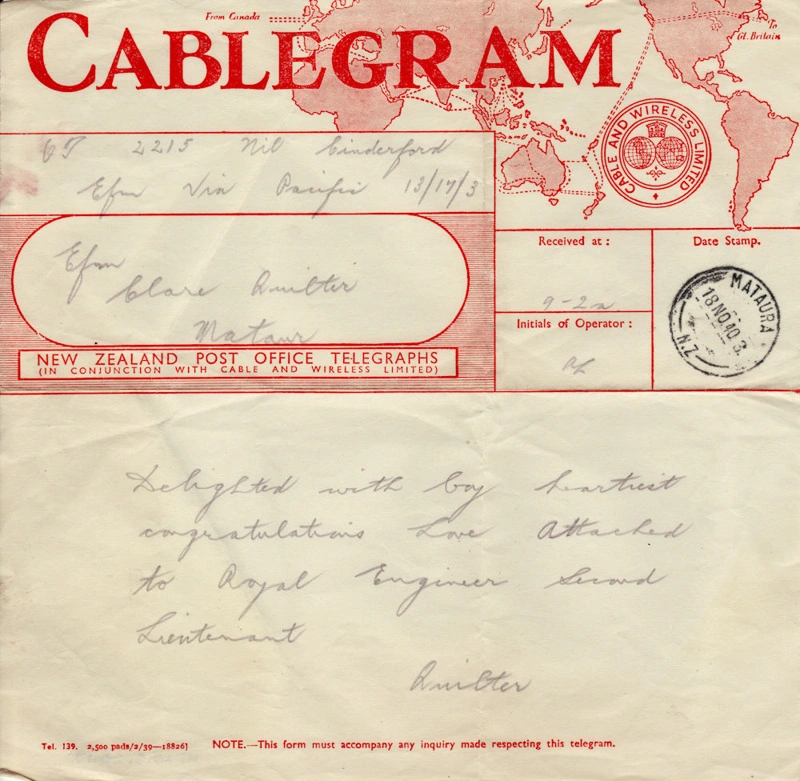 From Canada
To
Gt. Britain
CABLEGRAM
CABLE AND WIRELESS LIMITED
2215 Nil Cinderford
Efm Via Pacific 13/17/3
Efm
Clare Quilter
Mataur
NEW ZEALAND POST OFFICE TELEGRAPHS
(IN CONJUNCTION WITH CABLE AND WIRELESS LIMITED)
Received at :
9-2a
Initials of Operator :
Date Stamp.
MATAURA
18 NO 40 3
N.Z
Delighted with boy heartiest
congratulations Love Attached
to Royal Engineer Second
Lieutenant
Quilter
Tel. 139. 2,500 pads/2/39—18826]
NOTE.—This form must accompany any inquiry made respecting this telegram.